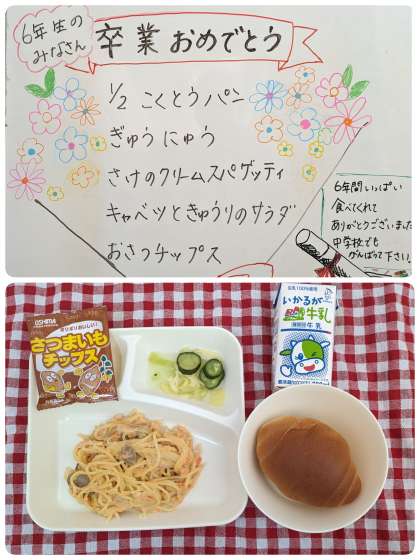 6年生の
みなさん
卒業おめでとう
1/2 こくとうパン
ぎゅうにゅう
さけのクリームスパゲッティ
キャベツときゅうりのサラダ
おさつチップス
6年間いっぱい
食べてくれて
ありがとうございました
中学校でも
がんばって下さい。
OSHIMA
さつまいも
チップス
いかるが
牛乳